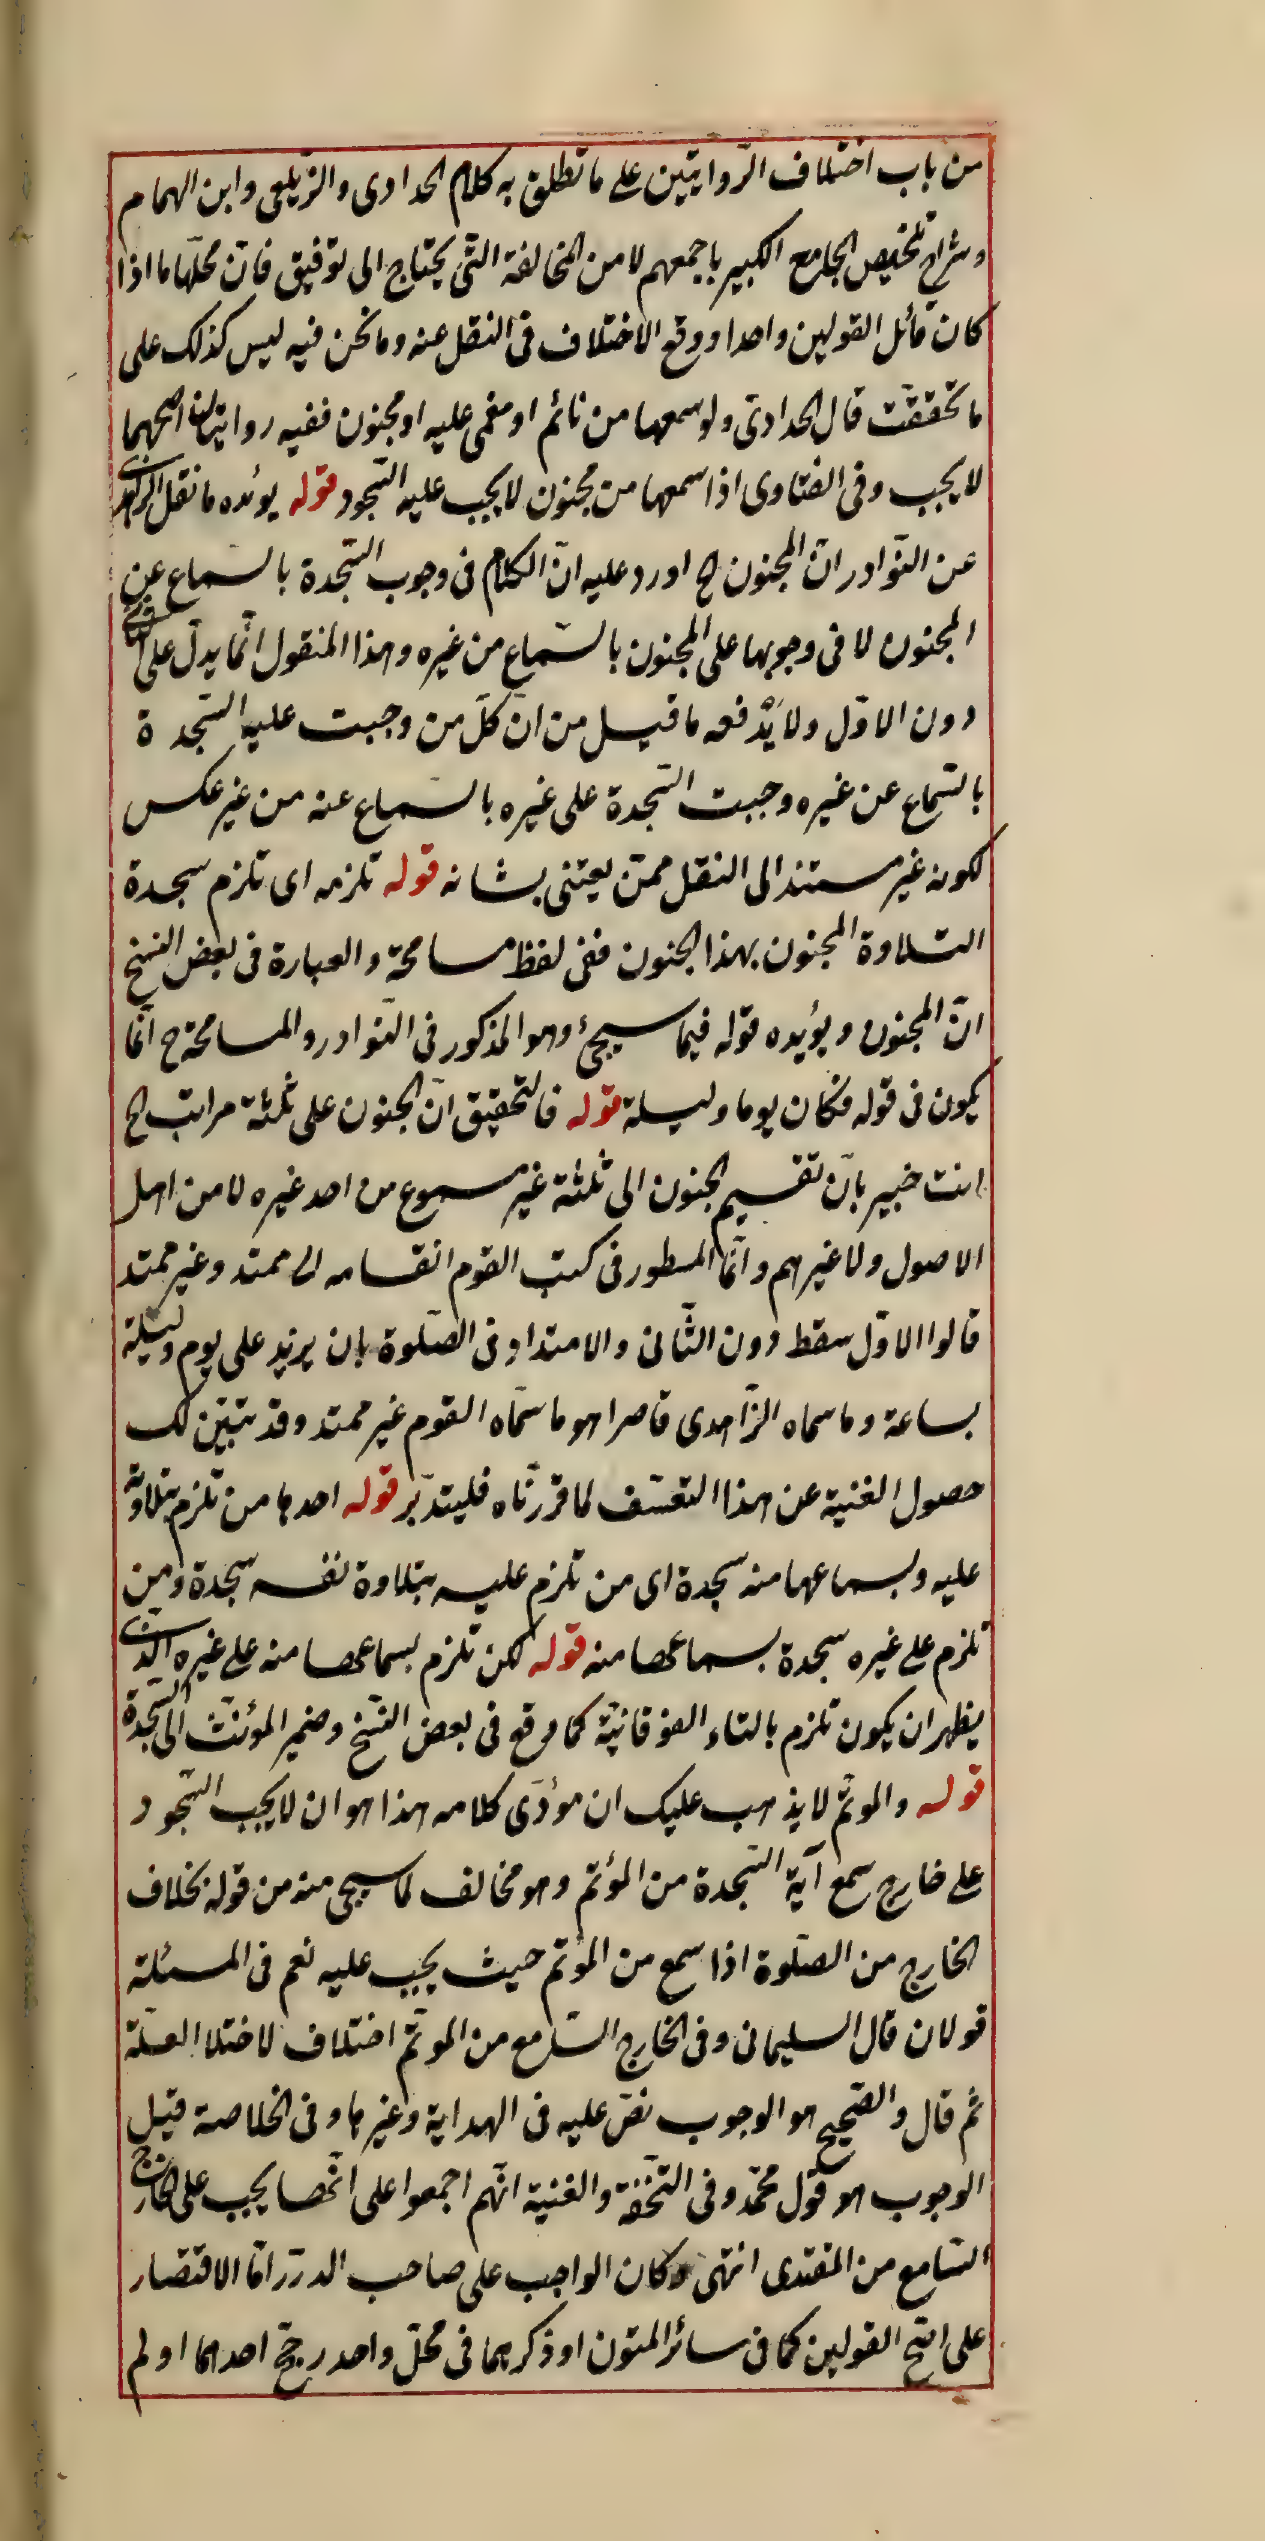 من باب اختلاف الرّوايتين على ما تطلق به كلام الحدادى والزّيلعى وابن الهمام
وشراح تلخيص الجامع الكبير باجمعهم لا من المخالفة الّتى يحتاج الى توفيق فانّ محلّها ما اذا
كان قائل القولين واحدا ووقع الاختلاف فى النقل عنه وما نحن فيه ليس كذلك على
ما تحققت قال الحدادى ولو سمعها من نائم او مغمى عليه او مجنون ففيه روايتان اصحهما
لا يجب وفى الفتاوى اذا سمعها من مجنون لا يجب عليه السّجود قوله يوئده ما نقل الزاهدى
عن النّوادر انّ المجنون الخ اورد عليه انّ الكلام فى وجوب السّجدة بالسّماع عن
المجنون لا فى وجوبها على المجنون بالسّماع من غيره وهذا المنقول انّما يدلّ على الثانى
دون الاوّل ولا يَدْفعه ما قيل من انّ كلّ من وجبت عليه السّجدة
بالسّماع عن غيره وجبت السّجدة على غيره بالسّماع عنه من غير عكس
لكونه غير مستند الى النقل ممّن يعتنى بشانه قوله تلزمه اى تلزم سجدة
التلاوة المجنون بهذا الجنون ففى لفظ مسامحة والعبارة فى بعض النسخ
انّ المجنون ويؤيده قوله فيما سيجئ وهو المذكور فى النّوادر والمسامحة ح انّما
يكون فى قوله فكان يوما وليلة قوله فالتحقيق انّ الجنون على ثلثة مراتب الخ
انت خبير بانّ تقسيم الجنون الى ثلثة غير مسموع من احد غيره لا من اهل
الاصول ولا غيرهم وانّما المسطور فى كتب القوم انقسامه الى ممتد وغير ممتد
قالوا الاوّل سقط دون الثّانى والامتداد فى الصّلوة بان يزيد على يوم وليلة
بساعة وما سماه الزّاهدى قاصرا هو ما سمّاه القوم غير ممتد وقد تبيّن لك
حصول الغنية عن هذا التعسّف لما قررّناه فليتدبّر قوله احدها من تلزم بتلاوته
عليه وبسماعها منه سجدة اى من تلزم عليه بتلاوة نفسه سجدة ومن
تلزم على غيره سجدة بسماعها منه قوله لكن تلزم بسماعها منه على غيره الذى
يظهر ان يكون تلزم بالتاء الفوقانيّة كما وقع فى بعض النّسخ وضمير المؤنّث الى السّجدة
قوله والموتمّ لا يذهب عليك ان مؤدّى كلامه هذا هو ان لا يجب السّجود
على خارج سمع آية السّجدة من المؤتم وهو مخالف لما سيجى منه من قوله بخلاف
الخارج من الصّلوة اذا سمع من الموتم حيث يجب عليه نعم فى المسئلة
قولان قال السليمانى وفى الخارج السّامع من الموتمّ اختلاف لاختلا العلّة
ثم قال والصّحيح هو الوجوب نصّ عليه فى الهداية وغيرها وفى الخلاصة قيل
الوجوب هو قول محمّد وفى التّحفة والغنية انّهم اجمعوا على انّها يجب على الخارج
السّامع من المقتدى انتهى وكان الواجب على صاحب الدرر امّا الاقتصار
على اصّح القولين كما فى سائر المتون او ذكرهما فى محلّ واحد رجّح احدهما او لم